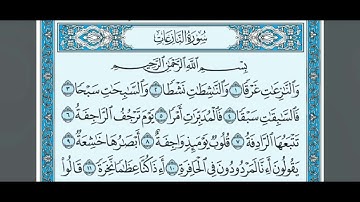 سورة النازعات
بسم الله الرحمن الرحيم
وَالنَّازِعَاتِ غَرْقًا ١ وَالنَّاشِطَاتِ نَشْطًا ٢ وَالسَّابِحَاتِ سَبْحًا ٣
فَالسَّابِقَاتِ سَبْقًا ٤ فَالْمُدَبِّرَاتِ أَمْرًا ٥ يَوْمَ تَرْجُفُ الرَّاجِفَةُ ٦
تَتْبَعُهَا الرَّادِفَةُ ٧ قُلُوبٌ يَوْمَئِذٍ وَاجِفَةٌ ٨ أَبْصَارُهَا خَاشِعَةٌ ٩
يَقُولُونَ أَءِنَّا لَمَرْدُودُونَ فِي الْحَافِرَةِ ١٠ أَءِذَا كُنَّا عِظَامًا نَّخِرَةً ١١ قَالُوا